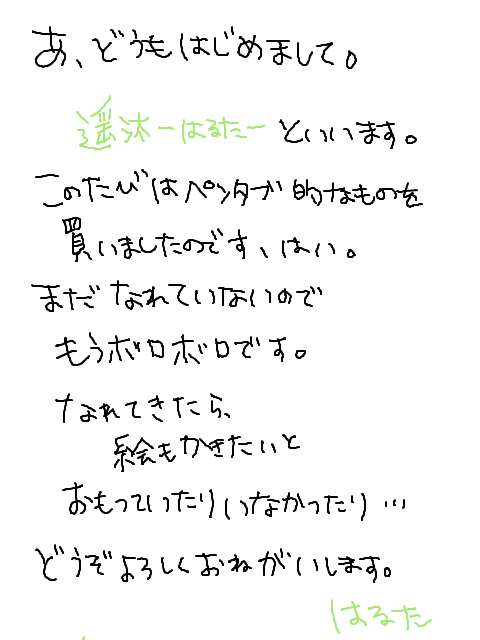 あ、どうもはじめまして。
遥汰ーはるたーといいます。
このたびはペンタブ的なものを
買いましたのです、はい。
まだなれていないので
もうボロボロです。
なれてきたら、
絵もかきたいと
おもっていたりいなかったり…
どうぞよろしくおねがいします。
はるた